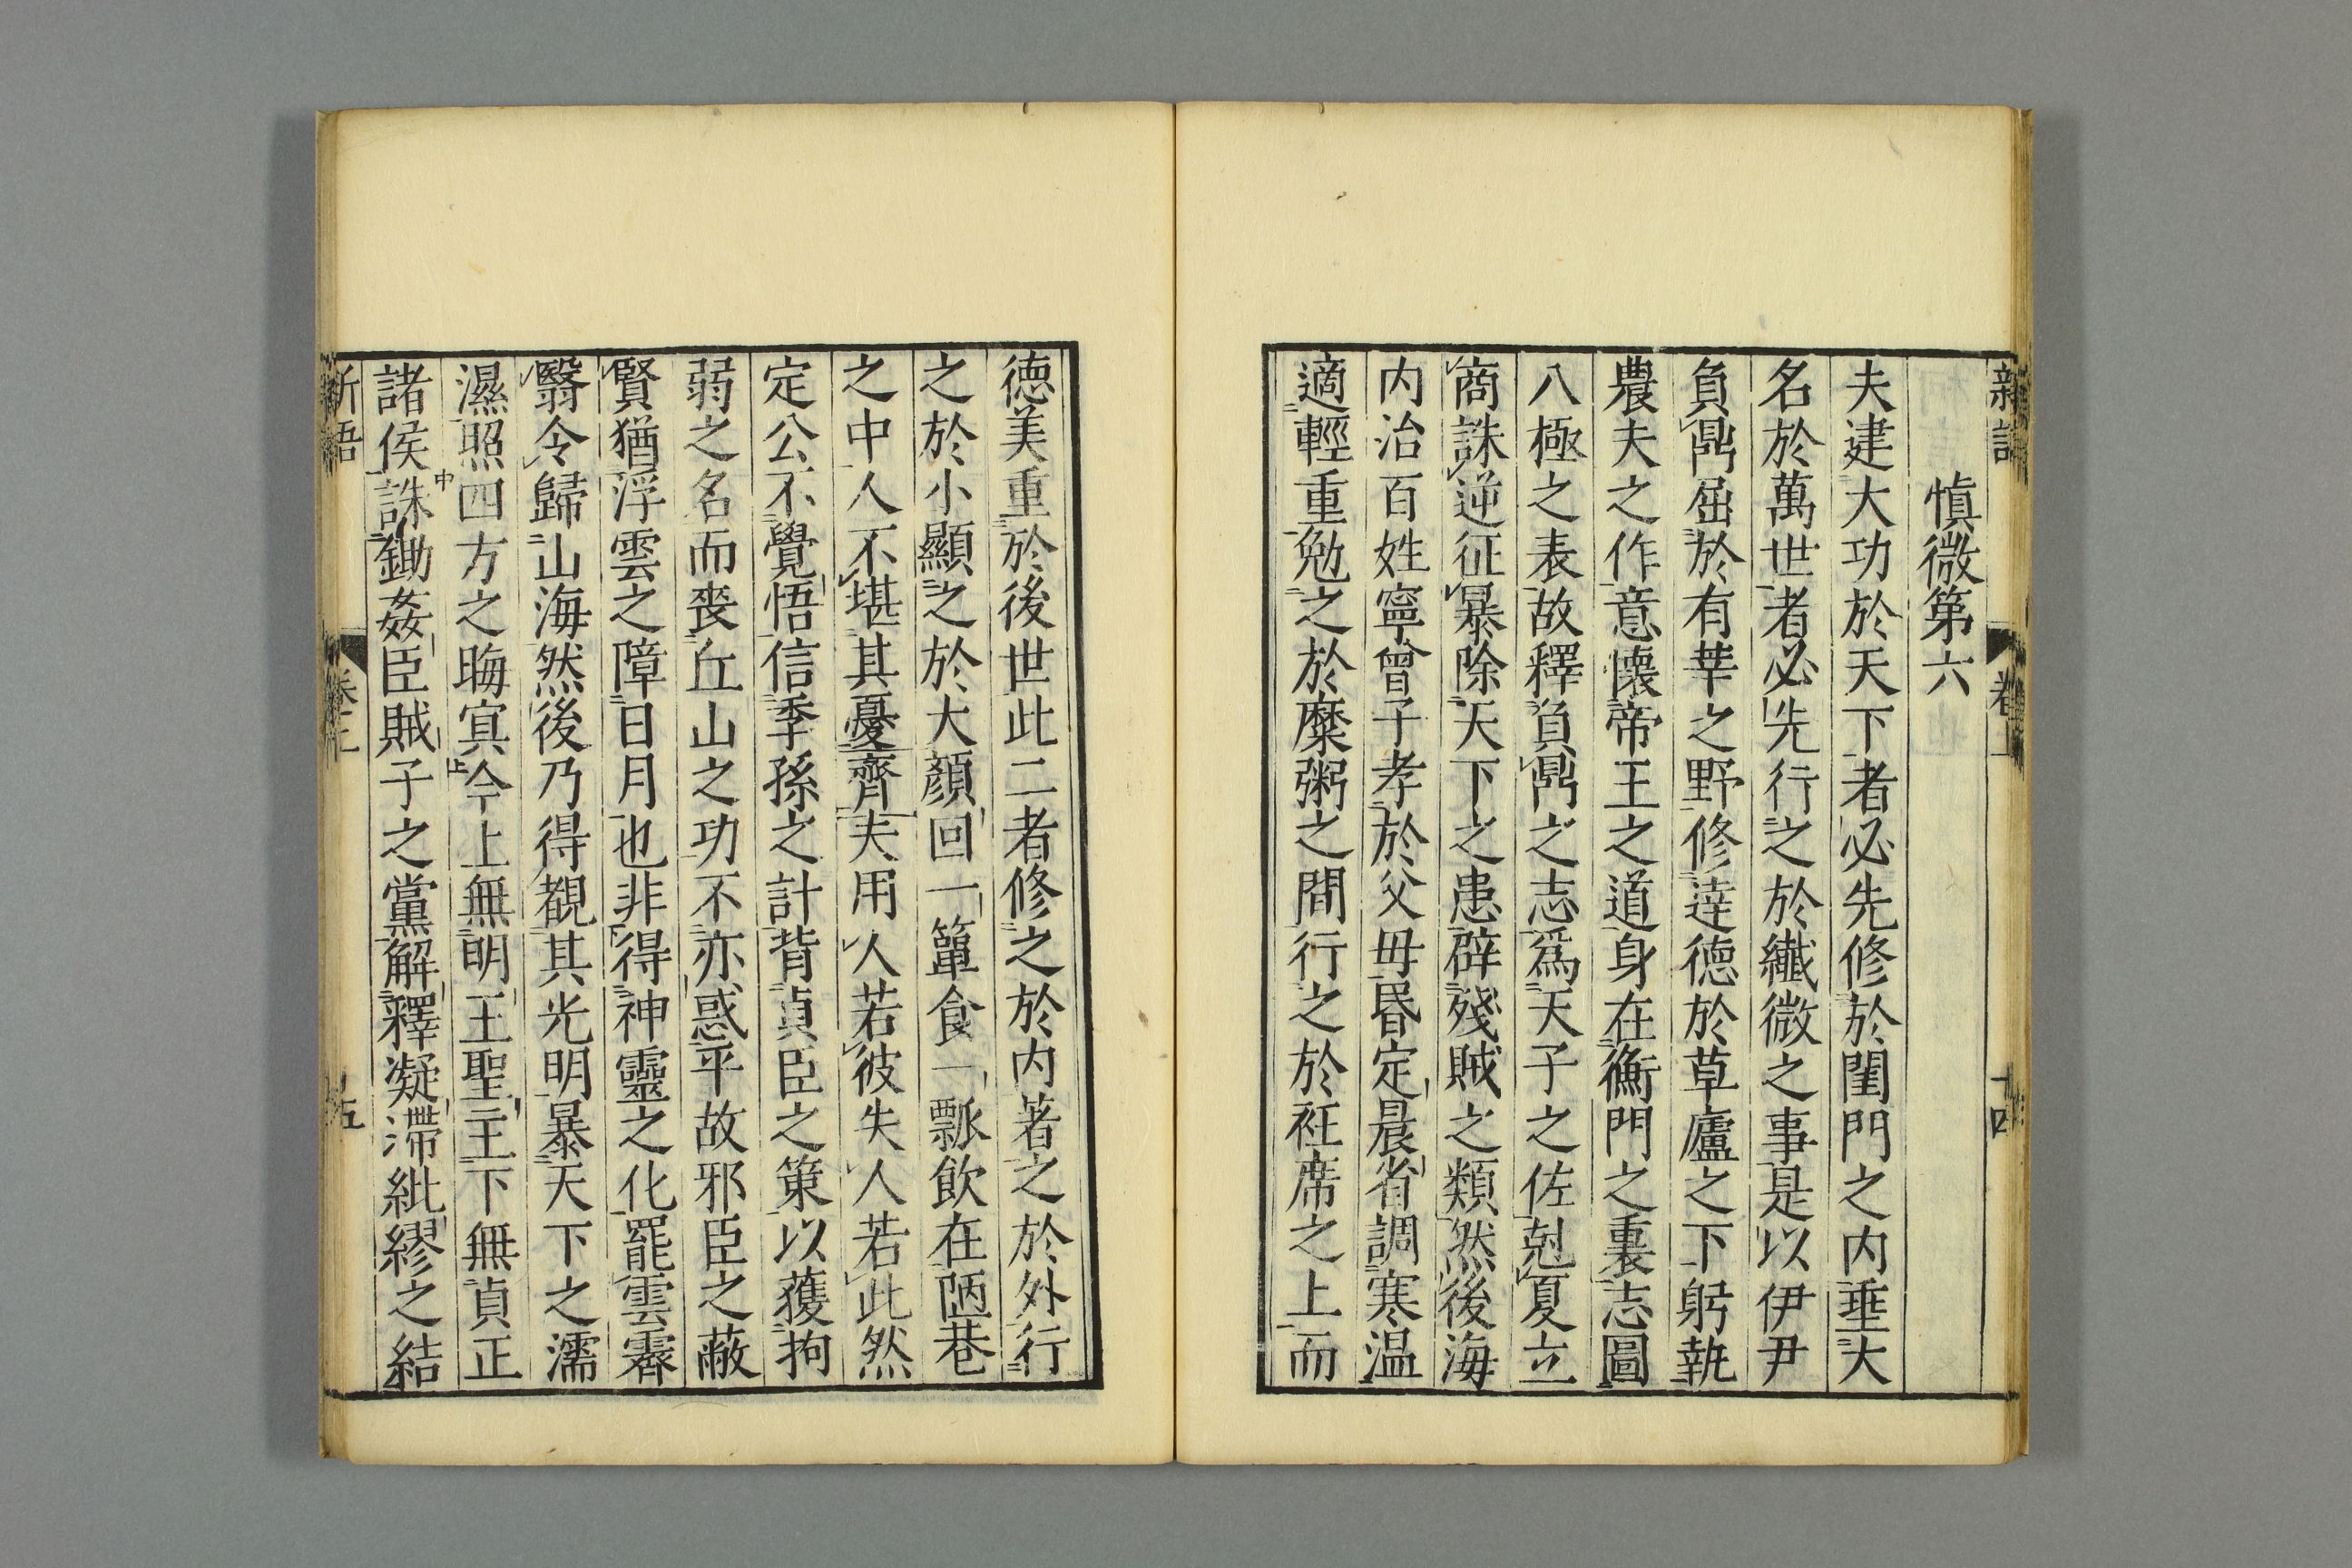 慎微第六
夫建大功於天下者必先修於閨門之内垂大
名於萬世者必先行之於纖微之事是以伊尹
負鼎屈於有莘之野修達德於草廬之下躬執
農夫之作意懷帝王之道身在衡門之裏志圖
八極之表故釋負鼎之志爲天子之佐尅夏立
商誅逆征暴除天下之患辟殘賊之類然後海
内治百姓寧曾子孝於父母昏定晨省調寒温
適輕重勉之於糜粥之間行之於衽席之上而
德美重於後世此二者修之於内著之於外行
之於小顯之於大顔回一簞食一瓢飲在陋巷
之中人不堪其憂齊夫用人若彼失人若此然
定公不覺悟信季孫之計背貞臣之策以獲拘
弱之名而喪丘山之功不亦惑乎故邪臣之蔽
賢猶浮雲之障日月也非得神靈之化罷雲霽
翳令歸山海然後乃得覩其光明暴天下之濡
濕照四方之晦㝠今上無明王聖主下無貞正
諸侯誅鋤姦臣賊子之黨解釋凝滯紕繆之結
新語